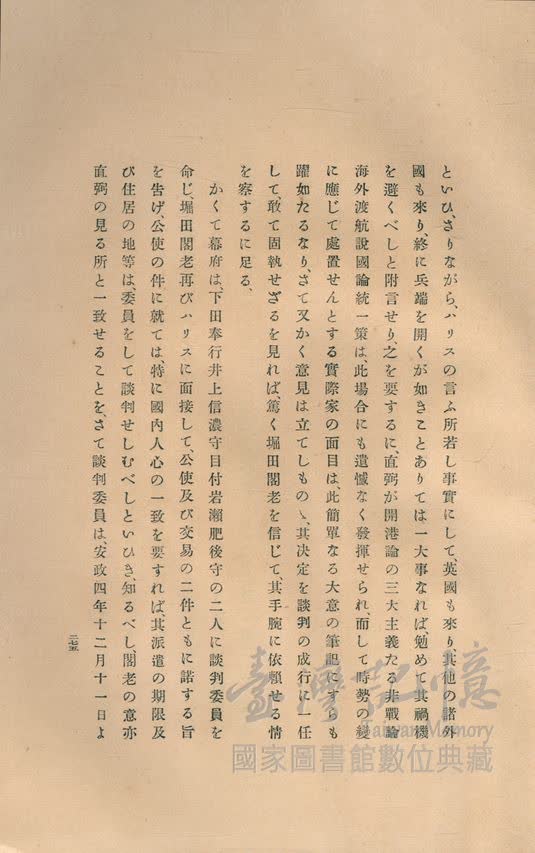 といひさりながら、ハリスの言ふ所若し事實にして、英國も來り、其他の諸外
國も來り、終に兵端を開くが如きことありては一大事なれば、勉めて其禍機
を避くべしと附言せり、之を要するに、直弼が開港論の三大主義たる非戰論
海外渡航說國論統一策は、此場合にも遺憾なく發揮せられ、而して時勢の變
に應じて處置せんとする實際家の面目は、此簡單なる大意の筆記にすらも
躍如たるなり、さて又かく意見は立てしものゝ、其決定を談判の成行に一任
して、敢て固執せざるを見れば、篤く堀田閣老を信じて、其手腕に依頼せる情
を察するに足る、
かくて幕府は、下田奉行井上信濃守目付岩瀬肥後守の二人に談判委員を
命じ、堀田閣老再びハリスに面接して、公使及び交易の二件ともに諾する旨
を告げ、公使の件に就ては、特に國內人心の一致を要すれば、其派遣の期限及
び住居の地等は、委員をして談判せしむべしといひき、知るべし、閣老の意亦
直弼の見る所と一致せることを、さて談判委員は、安政四年十二月十一日よ
二七五
臺灣記憶
Taiwan Memory
國家圖書館數位典藏